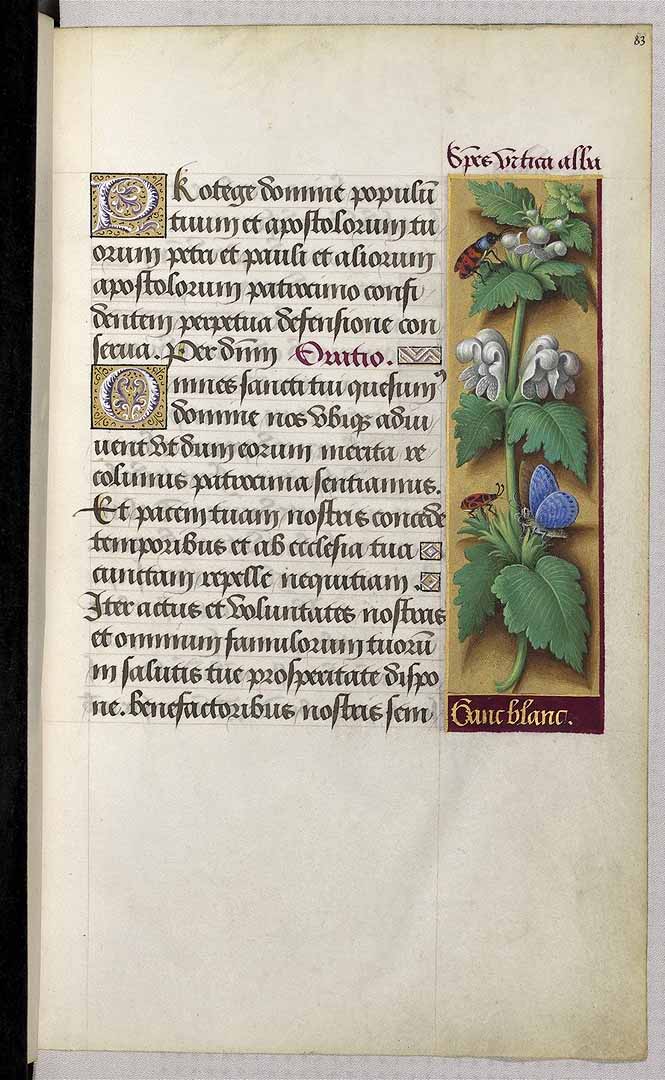 83
Spēs Vrtica alba
Protege domine populū
tuum et apostolorum tu
orum petri et pauli et aliorum
apostolorum patrocinio confi
dentem perpetua defensione con
serua. Per dn̄m Oratio.
Omnes sancti tui quesumꝰ
domine nos vbiqꝫ adiu
uent vt dum eorum merita re
colimus patrocinia sentiamus.
Et pacem tuam nostris concede
temporibus et ab ecclesia tua
cunctam repelle nequitiam.
Iter actus et voluntates nostras
et omnium famulorum tuorū
in salutis tue prosperitate dispo
ne. benefactoribus nostris sem
blanc.